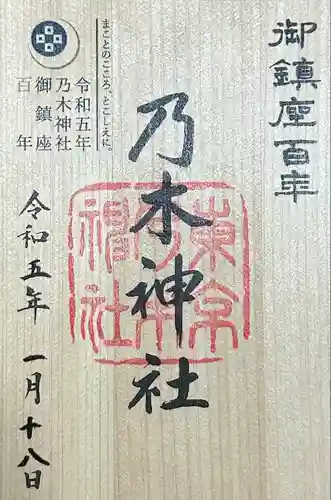 御鎮座百年
乃木神社
東京乃木神社
まことのこころ、とこしえに。
令和五年
乃木神社
御鎮座
百年
令和五年 一月十八日